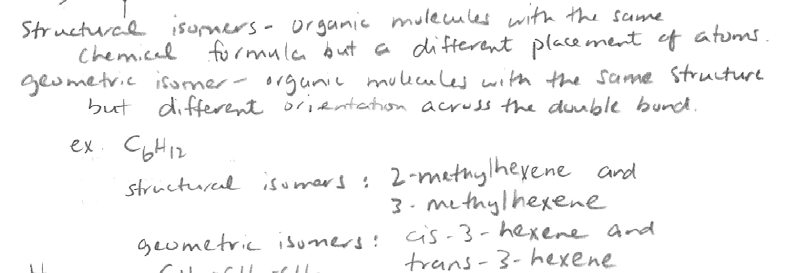 Structural isomers - organic molecules with the same
chemical formula but a different placement of atoms.
geometric isomer - organic molecules with the same structure
but different orientation across the double bond.
ex. C6H12
structural isomers : 2-methylhexene and
3-methylhexene
geometric isomers : cis-3-hexene and
trans-3-hexene